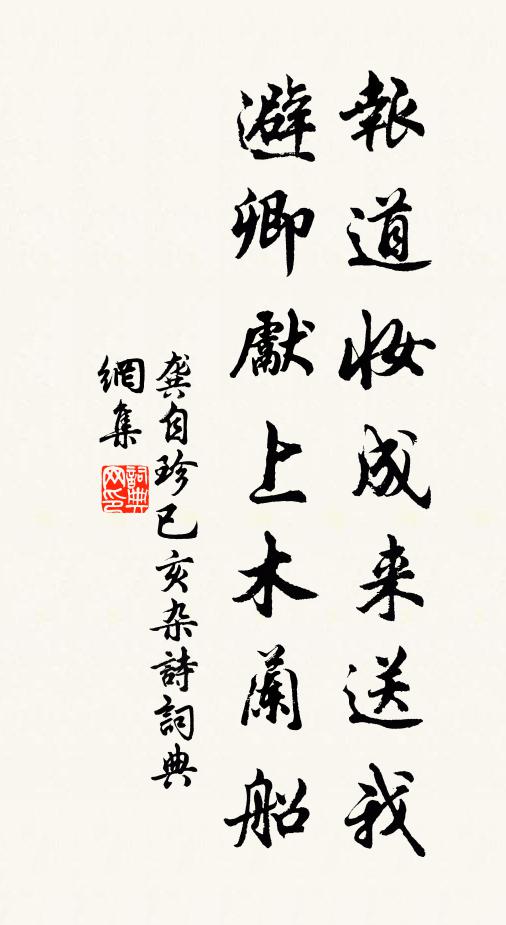 報道妝成来送我
避卿獻上木蘭船
龔自珍己亥杂詩詞典
網集
詞典網印